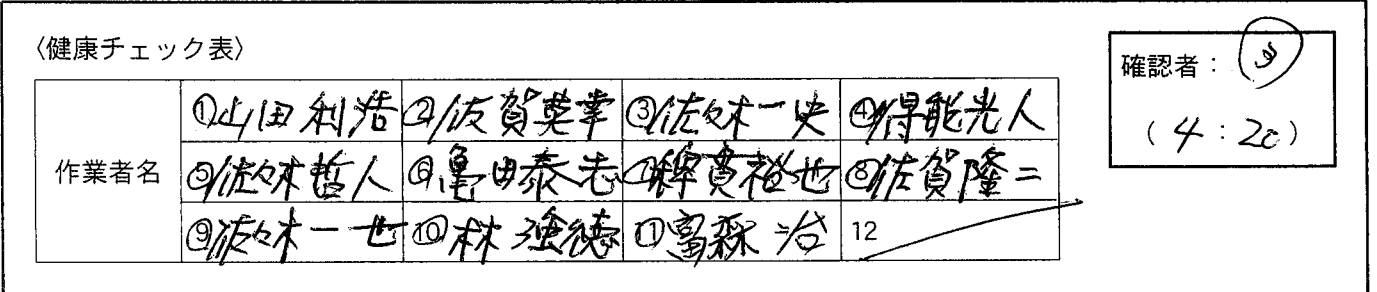 〈健康チェック表〉
確認者：
(4:20)
作業者名
①山田利浩 ②佐賀英幸 ③佐々木一史 ④得能光人
⑤佐々木哲人 ⑥亀田泰志 ⑦稗貫裕也 ⑧佐賀隆二
⑨佐々木一也 ⑩林強徳 ⑪富森治 12